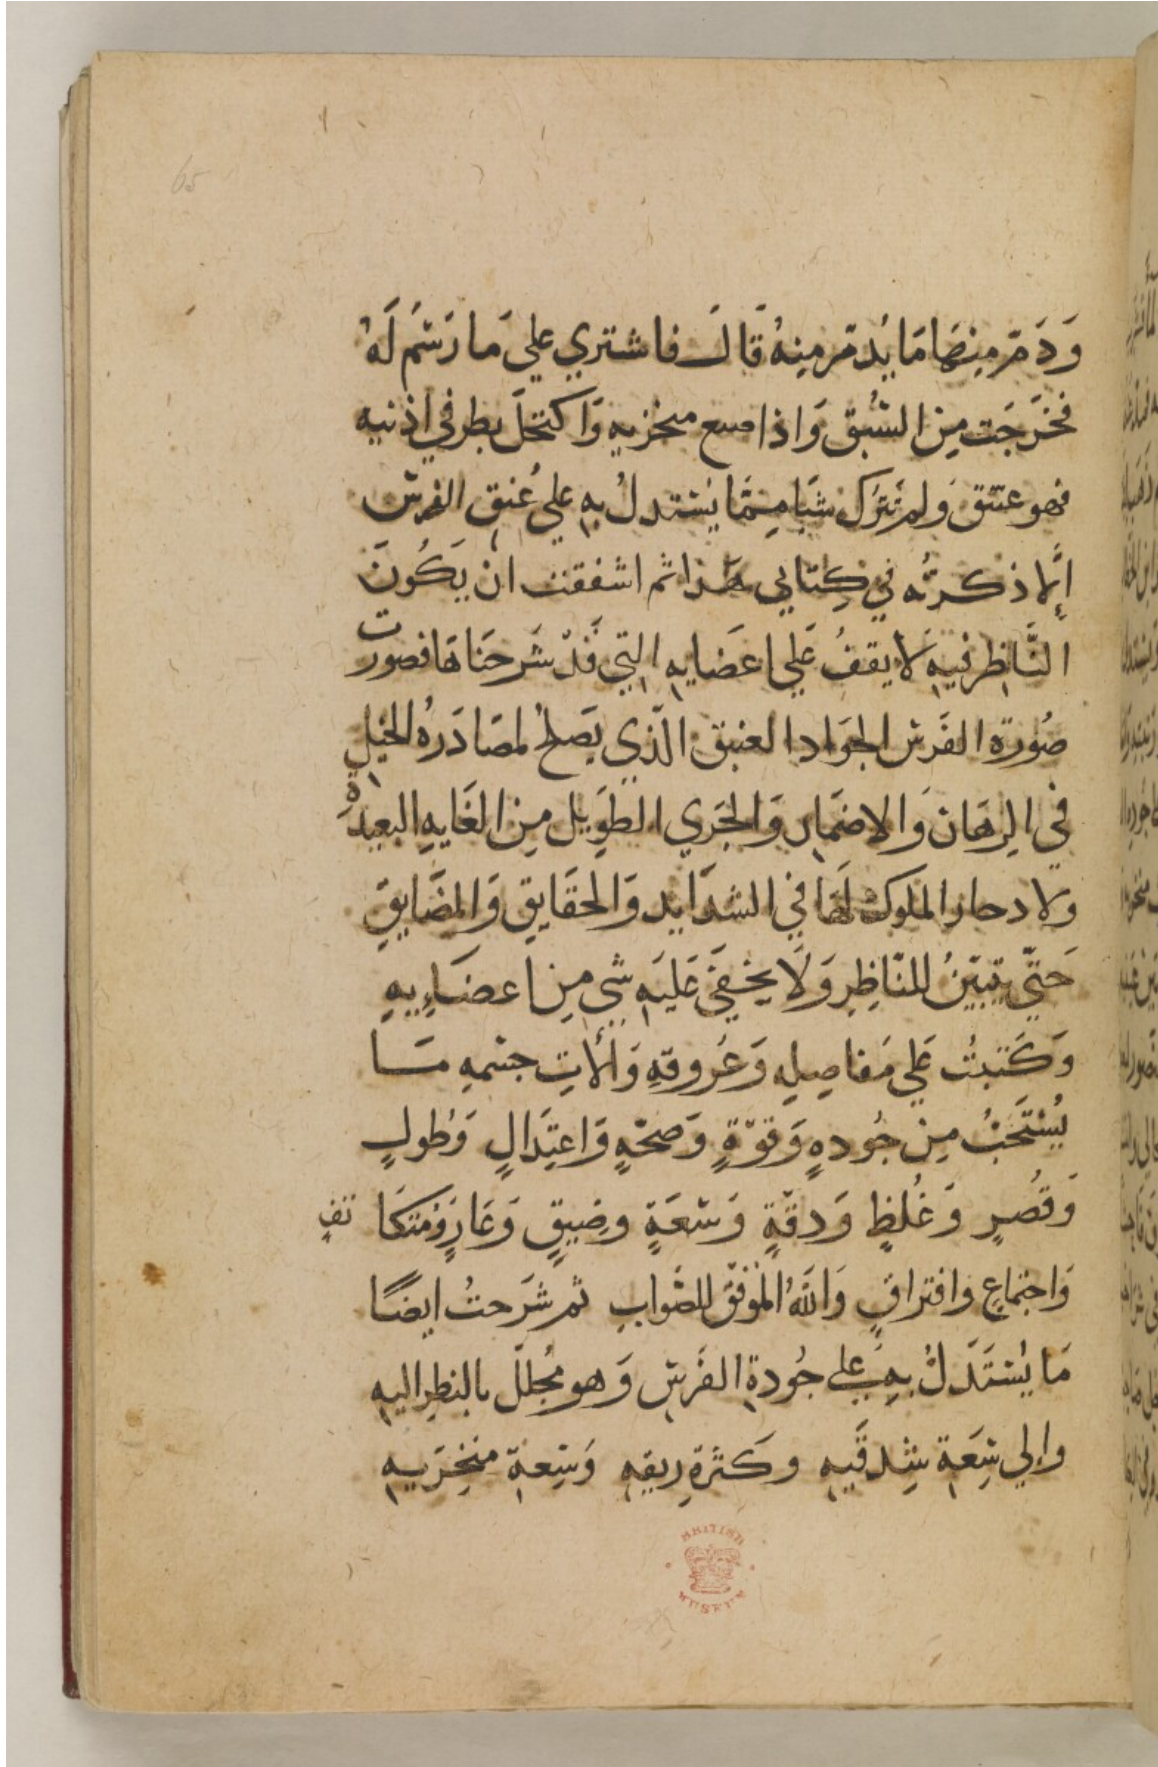 65
وَذَمّ مِنهَا مَا يُدمّ مِنهُ قَالَ فاشتري علي مَا رَسَم لَهُ
فخَرَجَت مِن السُبق وَاذا منخريه وَاكتحَلَ بطرفي اذنيه
فهو عتق وَلم نَترُك شَيا مِمَّا يُستدلُ بِهِ علي عُنقِ الفرس
إلَّا ذكرتُه في كِتابي هَذا ثم اشفقت ان يَكُونَ
النَّاظِر فيهِ لَا يقفُ عَلي اعضَايهِ التِي قَدْ شَرحنَاهَا فصورت
صُورة الفَرس الجوَاد العتيق الَّذِي يَصلحُ لمصَادَرهُ الخيلِ
في الرِهَان وَالاضمَارِ وَالجَري الطَوِيل مِن الغَايهِ البعيدَةِ
ولادحار الملوك لَهَا في الشدَايد وَالحقَايق وَالمضَايقَ
حَتّي يتبيّنُ للنّاظِرِ وَلَا يخفَي عَليَهِ شي مِن اعضَايِيهِ
وَكَتبتُ عَلي مَفاصِيلِهِ وَعُروقهِ وَالاتِ جسمهِ مَا
يُستَحَبُ مِن جُودهٍ وَقوّةٍ وَصحّهٍ وَاعتِدَالٍ وَطولٍ
وَقصُرٍ وَغُلظٍ وَدقّةٍ وَسَعَةٍ وضِيقٍ وَعَارٍ وَمتكَا تف
وَاجتماعٍ وافتراقٍ وَاللَّهُ الموُفّق للصَّوابِ ثم شَرَحتُ ايضًا
مَا يُستَدَلُ بِهِ علي جُودةِ الفَرسِ وَهو مُجلّل بالنظِر اليهِ
وإلي سِعَة شِدقَيهِ وكَثرَة رِيقهِ وَسِعَة مِنخِرَيهِ
BRITISH
MUSEUM